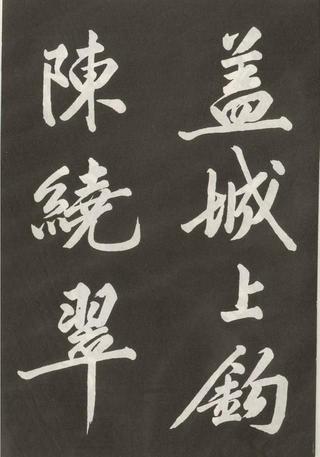 盖城上鈎
陳繞翠